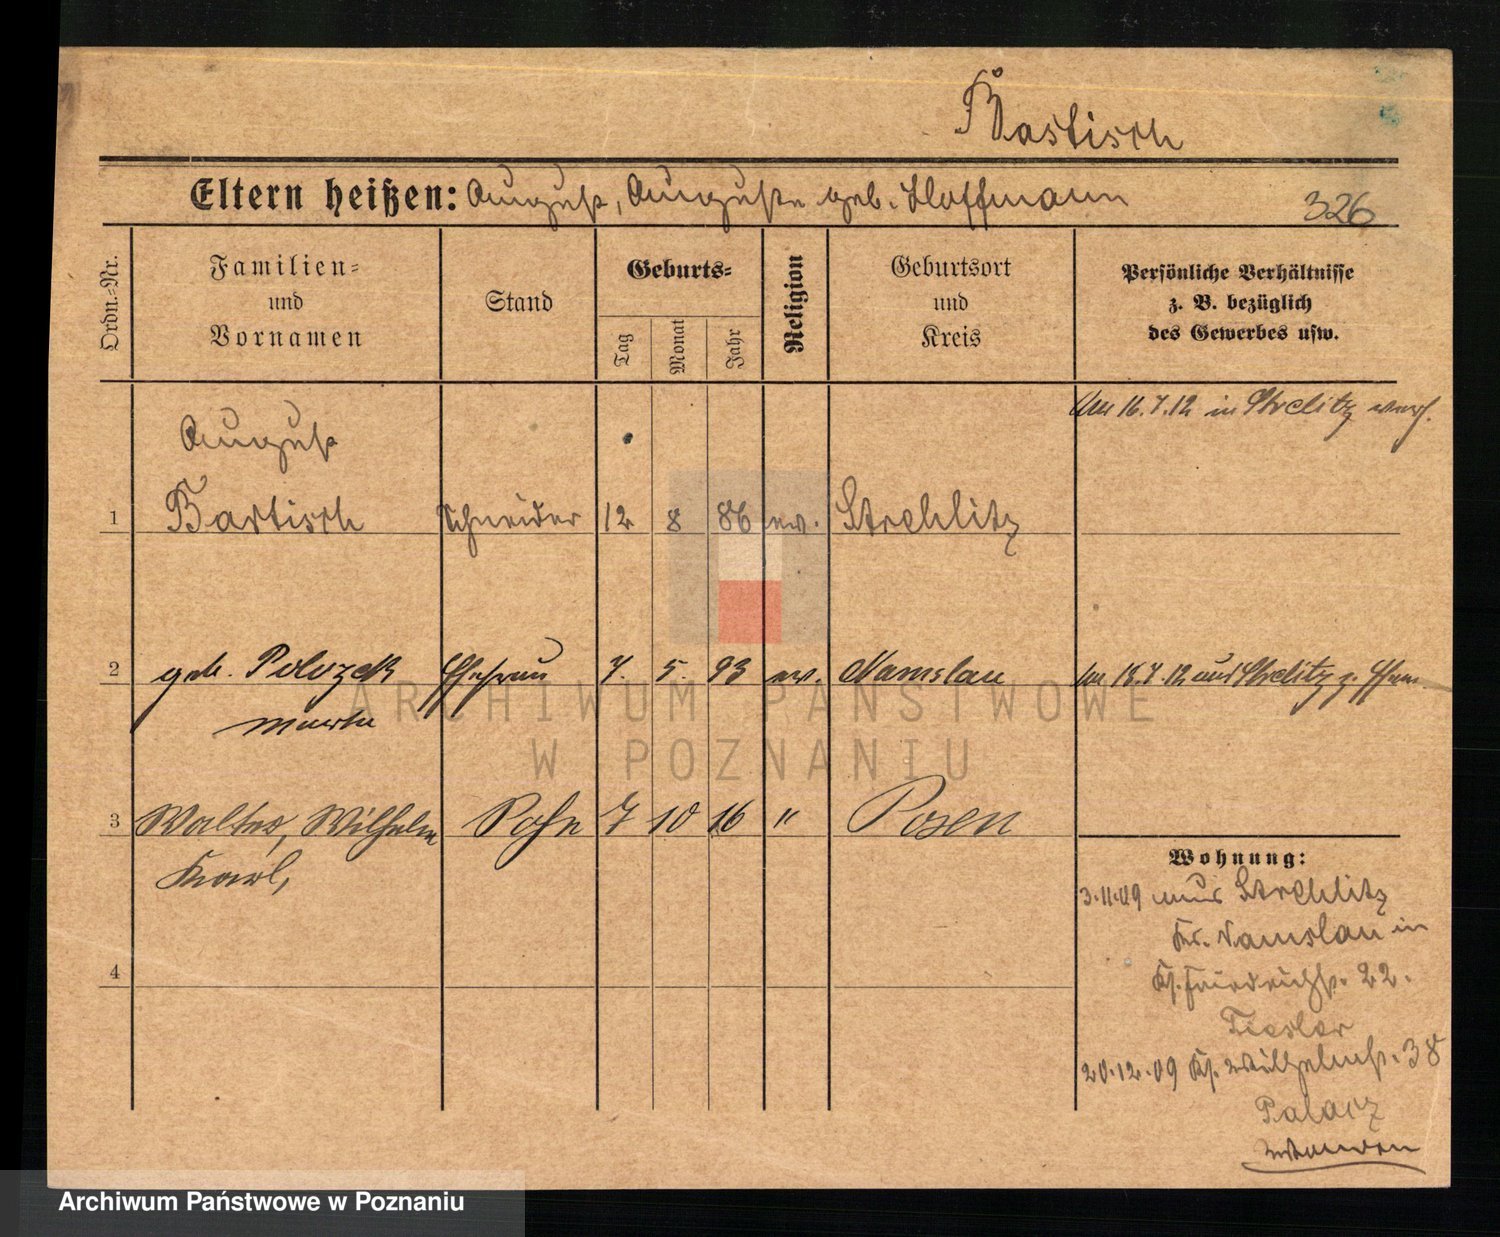 Bartisch
Eltern heißen: August, Auguste geb. Hoffmann
326
Ordn.-Nr.
Familien-
und
Vornamen
Stand
Geburts-
Tag
Monat
Jahr
Religion
Geburtsort
und
Kreis
Persönliche Verhältnisse
z. B. bezüglich
des Gewerbes usw.
Am 16.7.12 in Strelitz verh.
August
1 Bartisch Schneider 12 8 86 ev. Strehlitz
2 geb. Polozek Ehefrau 7. 5. 93 ev. Namslau
Am 18.7.12 aus Strelitz z. Ehem.
Martha
3 Walter, Wilhelm Sohn 7 10 16 " Posen
Karl,
4
Wohnung:
3.11.09 aus Strehlitz
Kr. Namslau in
Kl. Friedrichst. 22.
Tiesler
20.12.09 Wilhelmst. 38
Palacz
ARCHIWUM PAŃSTWOWE
W POZNANIU
Archiwum Państwowe w Poznaniu